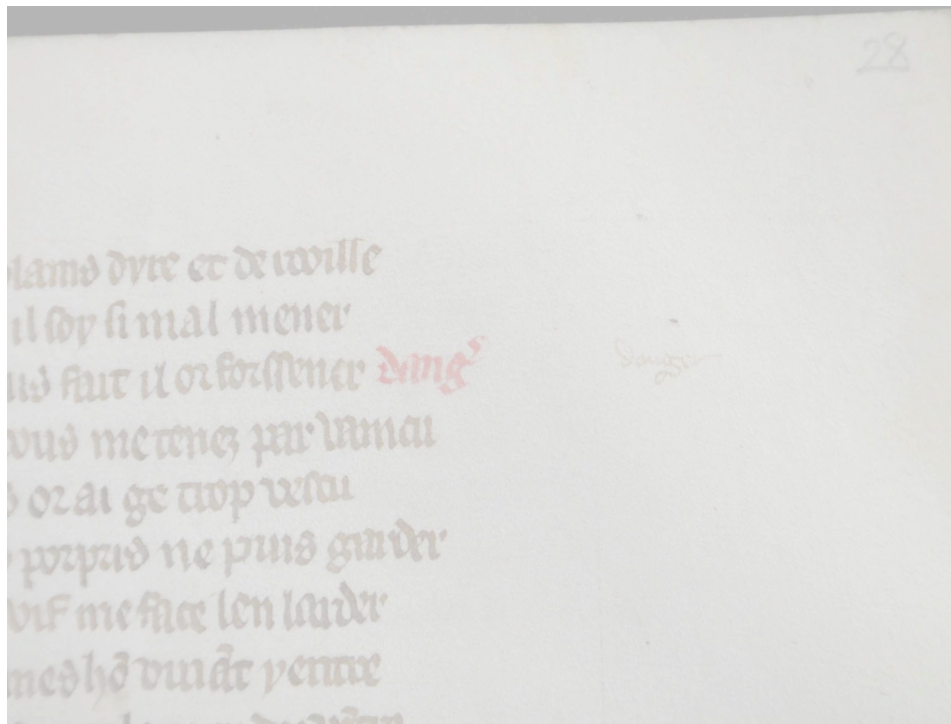 28
plains dyre et de rooille
il soy si mal mener
us fait il or forssener dang᷑s
vous me tenez par vaincu
s or ai ge trop vescu
porpris ne puis garder
vif me face len larder
mes hō viuāt y entre
Dangier